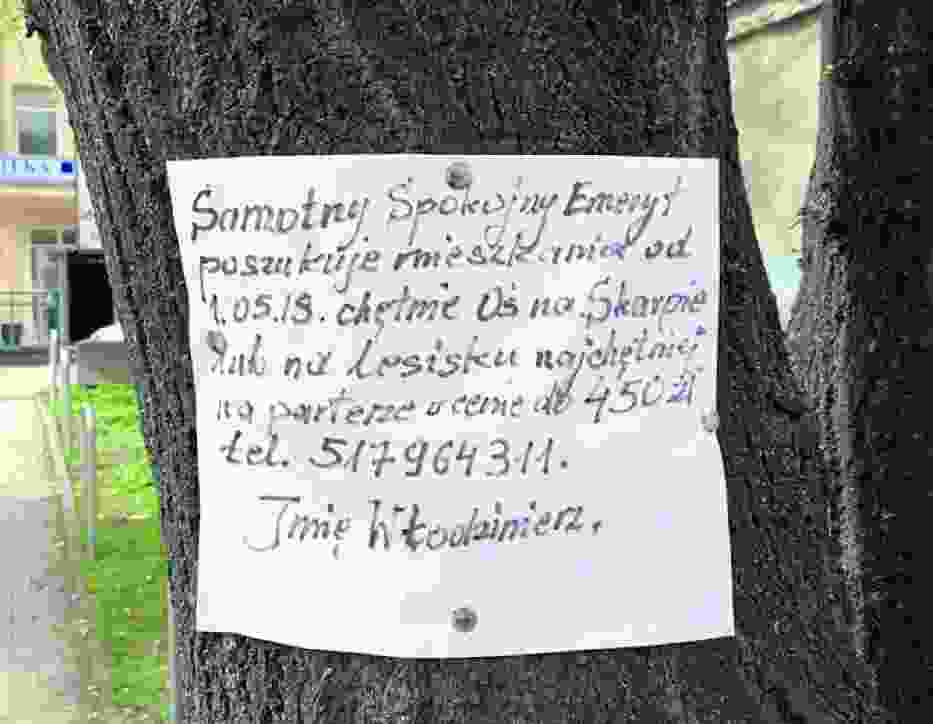 Samotny Spokojny Emeryt
poszukuje mieszkania od
1.05.18. chętnie Oś na Skarpie
lub na Lesisku najchętniej
na parterze w cenie do 450 zł
tel. 517964311.
Imię Włodzimierz.